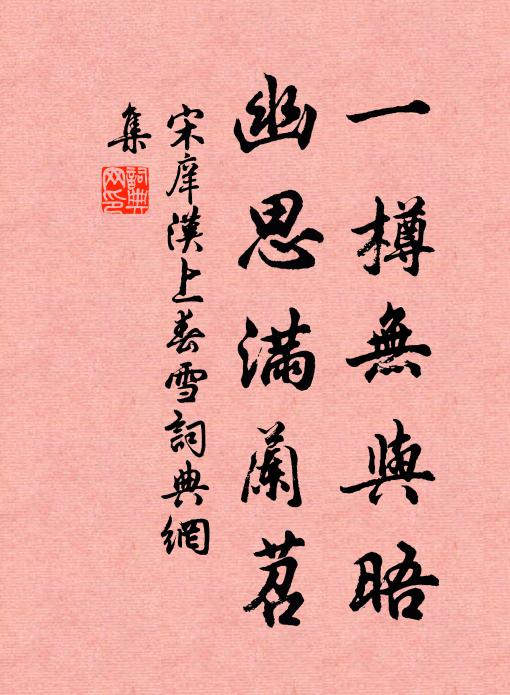 一樽無與晤
幽思滿蘭苕
宋庠漢上春雪詞典網
集
詞典網印